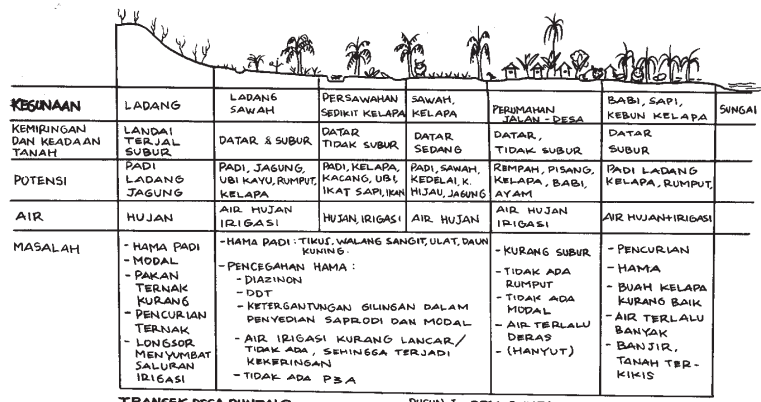 KEGUNAAN
LADANG
LADANG
SAWAH
PERSAWAHAN
SEDIKIT KELAPA
SAWAH,
KELAPA
PERUMAHAN
JALAN - DESA
BABI, SAPI,
KEBUN KELAPA
SUNGAI
KEMIRINGAN
DAN KEADAAN
TANAH
LANDAI
TERJAL
SUBUR
DATAR & SUBUR
DATAR
TIDAK SUBUR
DATAR
SEDANG
DATAR,
TIDAK SUBUR
DATAR
SUBUR
POTENSI
PADI
LADANG
JAGUNG
PADI, JAGUNG,
UBI KAYU, RUMPUT,
KELAPA
PADI, KELAPA,
KACANG, UBI,
IKAT SAPI, IKAN
PADI, SAWAH,
KEDELAI, K.
HIJAU, JAGUNG
REMPAH, PISANG,
KELAPA, BABI,
AYAM
PADI LADANG
KELAPA, RUMPUT,
AIR
HUJAN
AIR HUJAN
IRIGASI
HUJAN, IRIGASI
AIR HUJAN
AIR HUJAN
IRIGASI
AIR HUJAN+IRIGASI
MASALAH
- HAMA PADI
- MODAL
- PAKAN
TERNAK
KURANG
- PENCURIAN
TERNAK
- LONGSOR
MENYUMBAT
SALURAN
IRIGASI
- HAMA PADI : TIKUS, WALANG SANGIT, ULAT, DAUN
KUNING.
- PENCEGAHAN HAMA :
- DIAZINON
- DDT
- KETERGANTUNGAN GILINGAN DALAM
PENYEDIAN SAPRODI DAN MODAL
- AIR IRIGASI KURANG LANCAR/
TIDAK ADA, SEHINGGA TERJADI
KEKERINGAN
- TIDAK ADA P3A
- KURANG SUBUR
- TIDAK ADA
RUMPUT
- TIDAK ADA
MODAL
- AIR TERLALU
DERAS
- (HANYUT)
- PENCURIAN
- HAMA
- BUAH KELAPA
KURANG BAIK
- AIR TERLALU
BANYAK
- BANJIR,
TANAH TER-
KIKIS
TRANSEK DESA